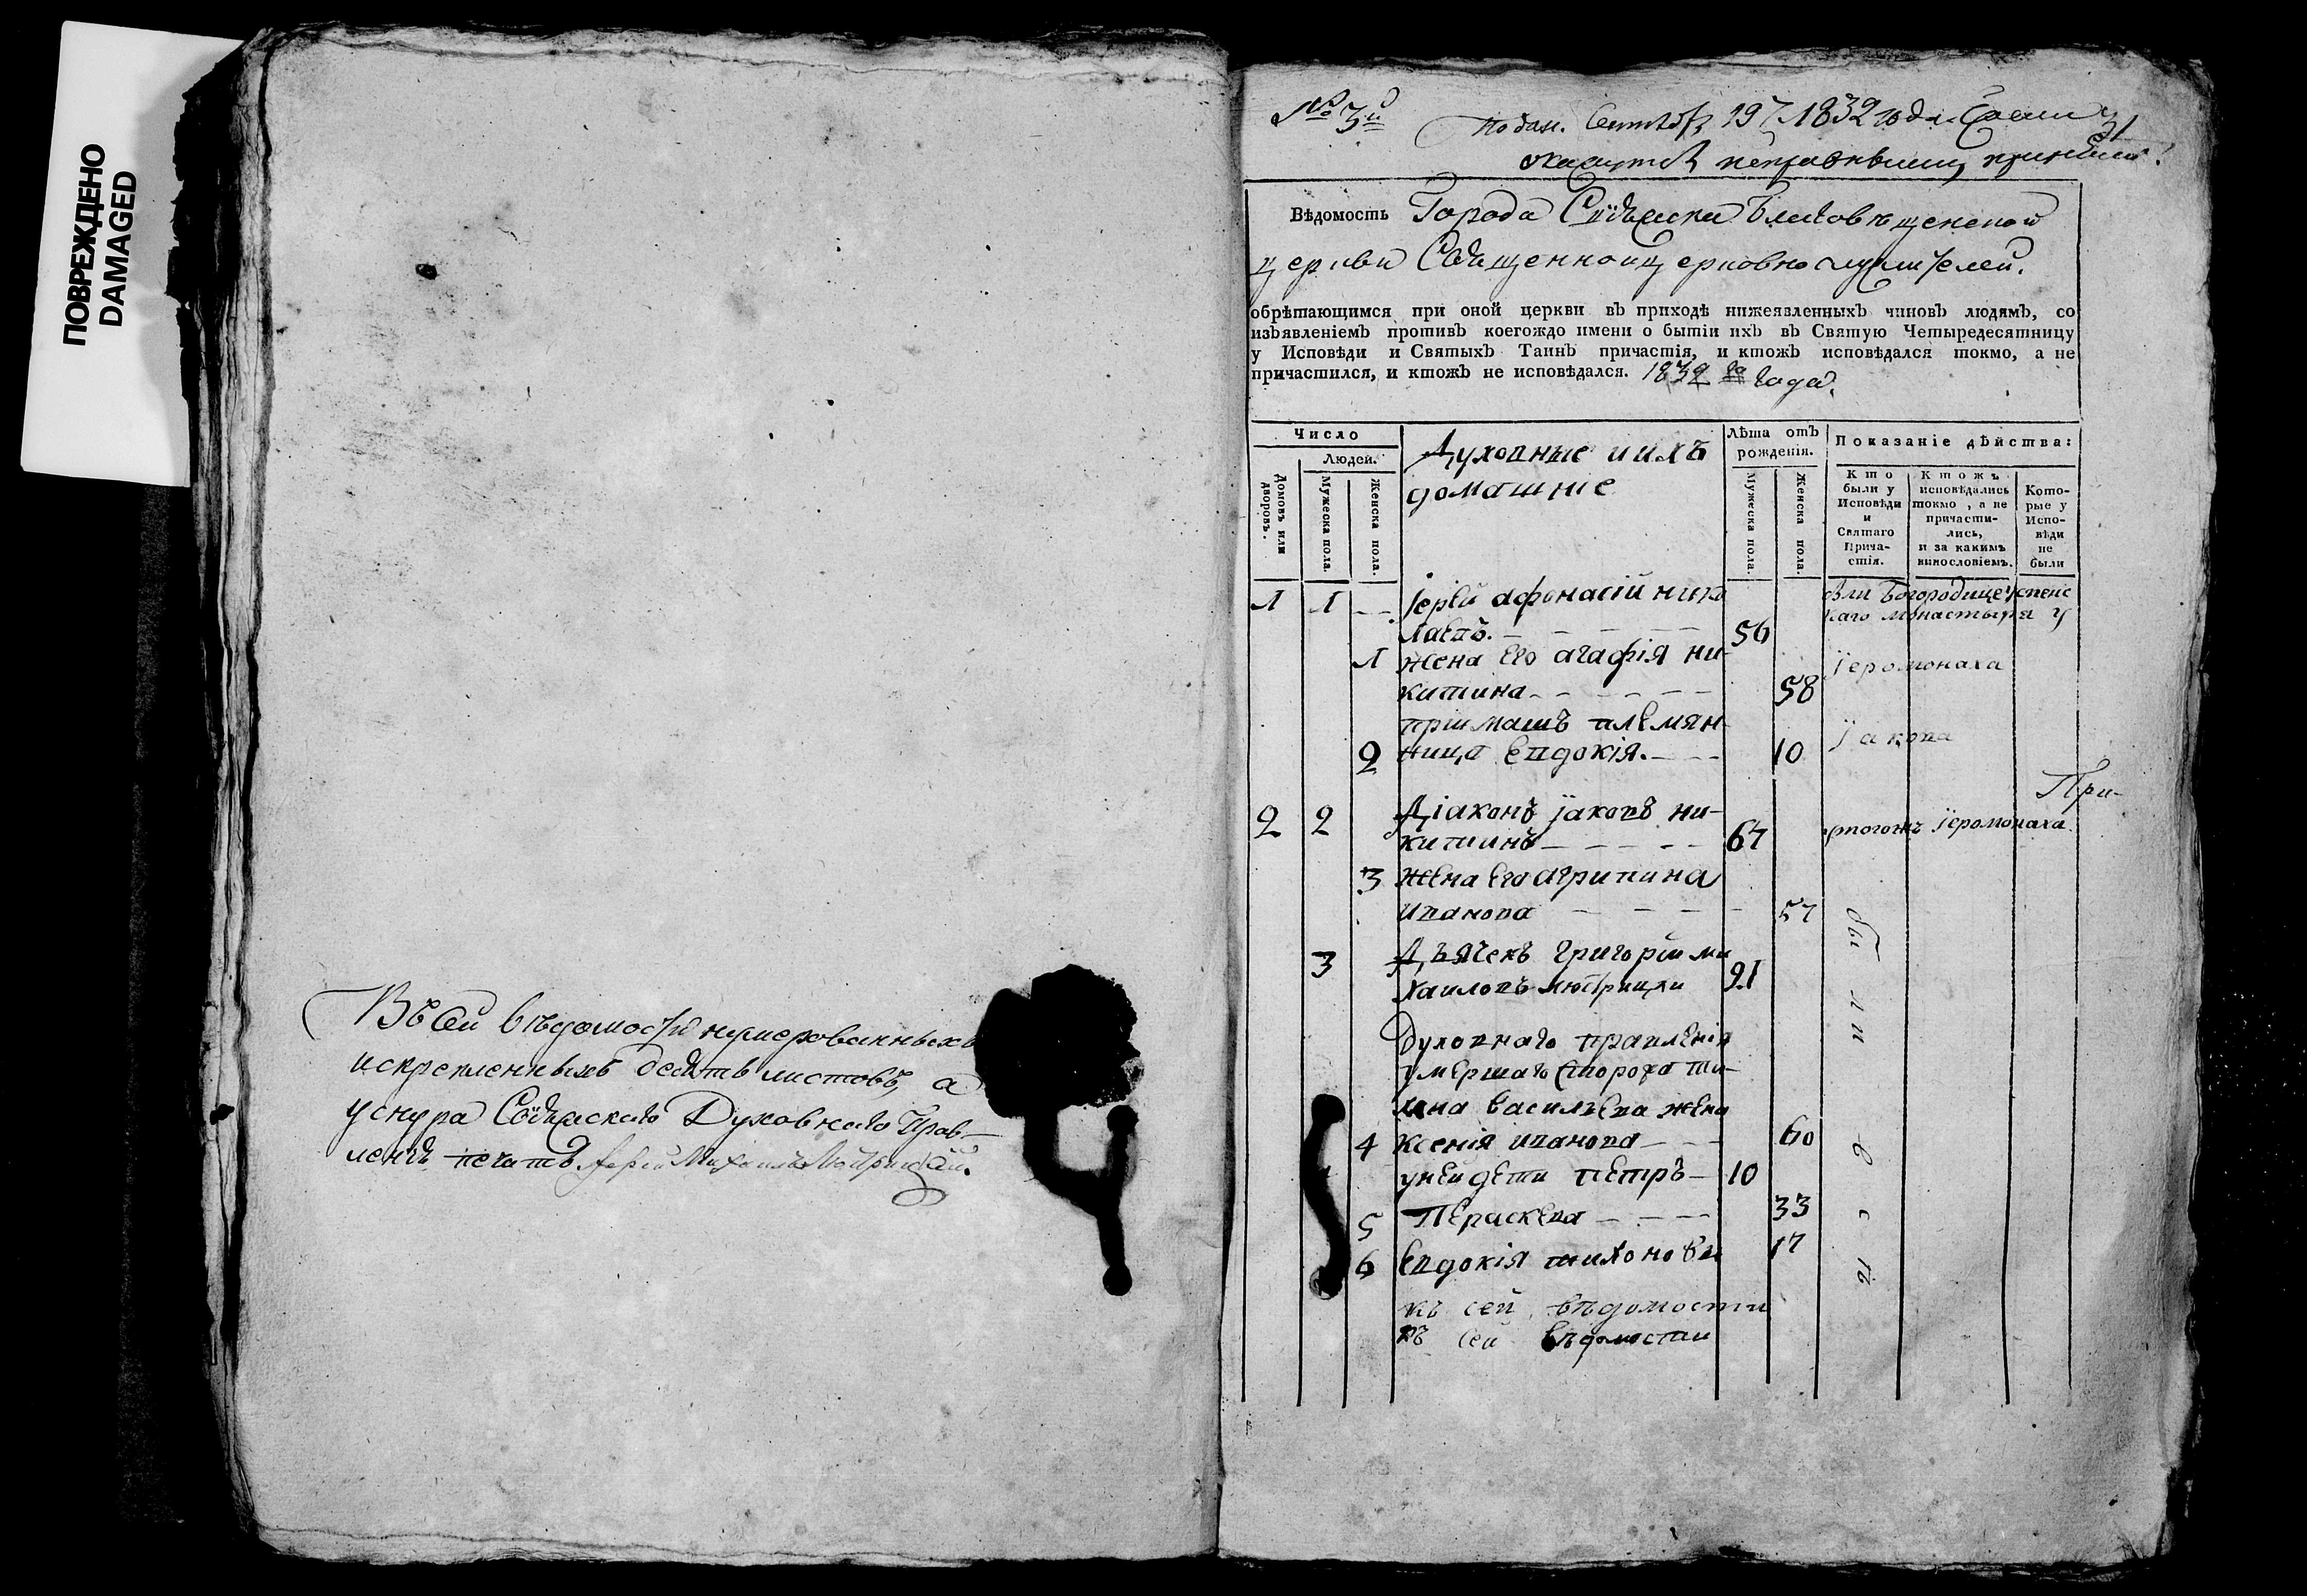 ПОВРЕЖДЕНО
DAMAGED
Въ сей вѣдомости нумерованныхъ
искрепленныхъ десять листовъ, а
уснура Свіяжскаго Духовнаго Прав-
ленія печать Іерей Михаилъ
№ 3й
Подан. Сентября 19 1832 года
31
Вѣдомость Города Свіяжска Благовѣщенской
церкви Священноицерковнослужителей.
обрѣтающимся при оной церкви въ приходѣ нижеявленныхъ чиновъ людямъ, со
изъявленіемъ противъ коегождо имени о бытіи ихъ въ Святую Четыредесятницу
у Исповѣди и Святыхъ Таинъ причастія, и ктожъ исповѣдался токмо, а не
причастился, и ктожъ не исповѣдался. 1832 го года.
Число
Людей.
Домовъ или дворовъ.
Мужеска пола.
Женска пола.
Духовные иихъ
домашніе
Лѣта отъ
рожденія.
Мужеска пола.
Женска пола.
Показаніе дѣйства:
Кто
были у
Исповѣди
и
Святаго
Прича-
стія.
Ктожъ
исповѣдались
токмо, а не
причасти-
лись,
и за какимъ
винословіемъ.
Кото-
рые у
Испо-
вѣди
не
были
1 1 — Іерей афонасій нико
лаевъ. 56
были Богородицеуспенс
каго монастыря у
1 жена его агафія ни-
китина 58
Іеромонаха
пріимашъ племян-
2 ница Евдокія. 10
Іакова
При-
2 2 Діаконъ Іаковъ ни-
китинъ 67
утогожъ Іеромонаха
3 жена его агрипина
иванова 57
3 Дьячекъ григорій ми
хаиловъ 21
Духовнаго правленія
умершаго сторожа ти-
хона васильева жена
4 ксенія иванова 60
унейдети петръ 10
5 Параскева 33
6 Евдокія тихоновы 17
были всѣ
къ сей вѣдомости
къ сей вѣдомости